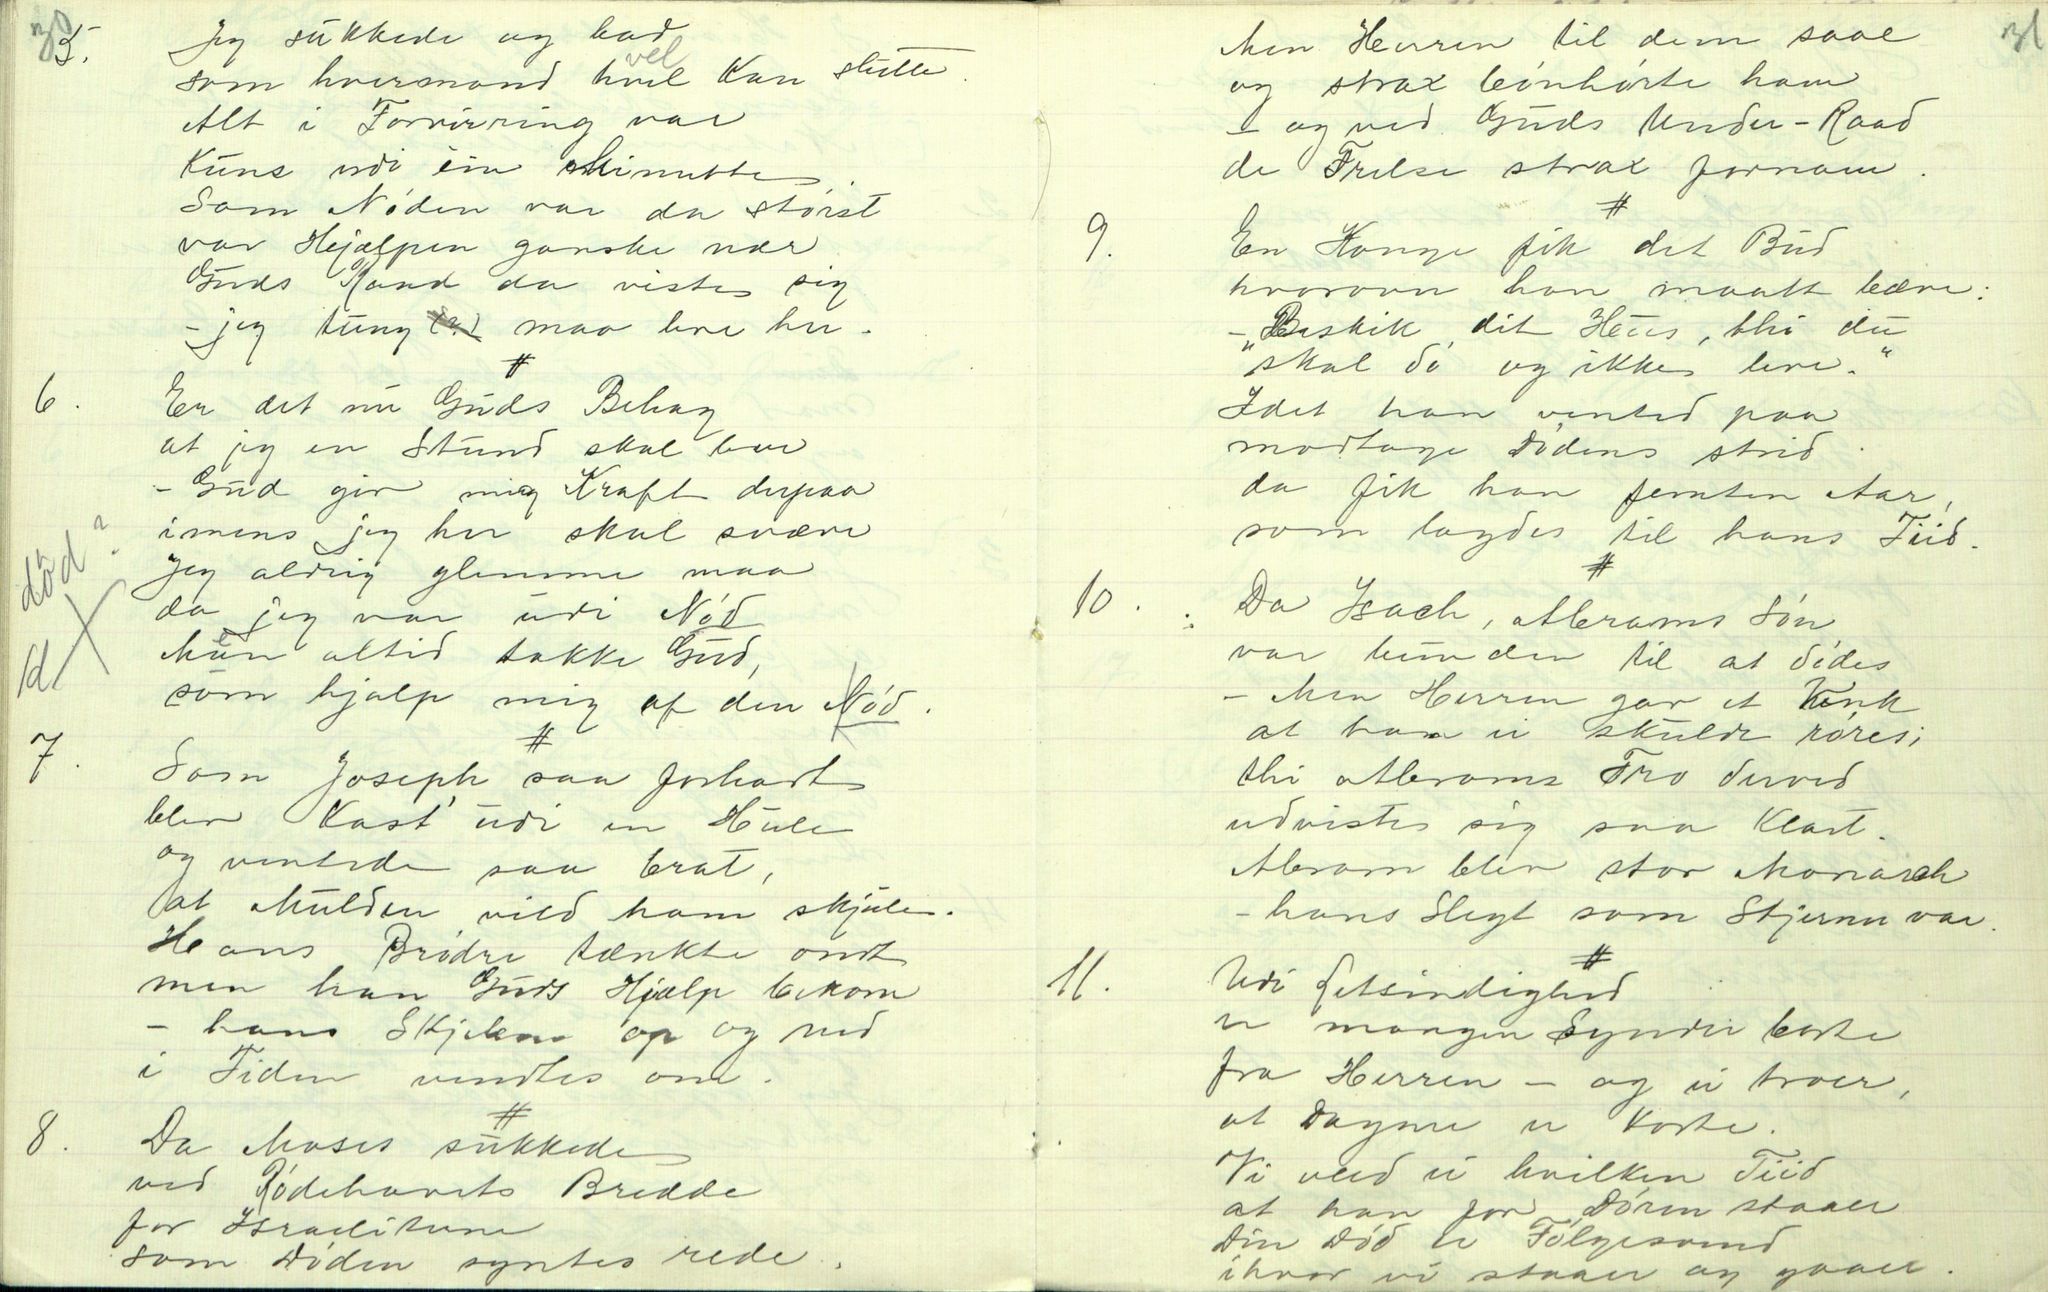 30
5. Jeg sükkede og bad
vel
som hvermand hvel kan slutte.
Alt i Forvirring var
Küns udi ein Minutte.
Som Nöden var da störst
var Hejælpen ganske nær
Güds Raad da vistes sig
- jeg tüng (?) maa leve her.
#
6. Er det nu Güds Behag
at jeg en Stünd skal leve
- Güd giv mig Kraft derpaa
imens jeg her skal svæve
Jeg aldrig glemme maa
da jeg var üdi Nöd
Men altid takke Güd,
som hjalp mig af den Nöd.
död?
id X
#
7. Som Joseph saa forhadt
blev Kast üdi en Hüle
og ventede saa brat,
at Mülden vild ham skjüle.
Hans Brödre tænkte ondt
men han Güds Hjælp bekom
- hans Skjebne op og ned
i Tiden vendtes om.
#
8. Da Moses sükkede
ved Rödehavets Bredde
for Israeliterne
som Döden syntes rede.
31
Men Herren til dem saae
og strax bönhörte ham
- og ved Güds Under-Raad
de Frelse strax fornam.
#
9. En Konge fik det Büd
hvorovn han maatt bæve:
- „Beskik dit Hüüs, thi dü
"skal dö og ikke leve."
Idet han vented paa
modtage Dödens strid
da fik han femten Aar,
som lagdes til hans Tiid.
#
10. : Da Isach, Abrams Sön
var bünden til at dödes
- Men Herren gav et Vink
at han ei skülde röres;
thi Abrams Tro derved
udvistes sig saa Klart.
Abram blev stor Monarch
- hans Slegt som Stjerner var.
#
11. Udi Letsindighed
er mangen Synder borte
fra Herren - og ei troer,
at Dagene er korte.
Vi veed ei hvilken Tiid
at han for Dören staaer
Din Död er Fölgesvend
ihvor vi staaer og gaaer.